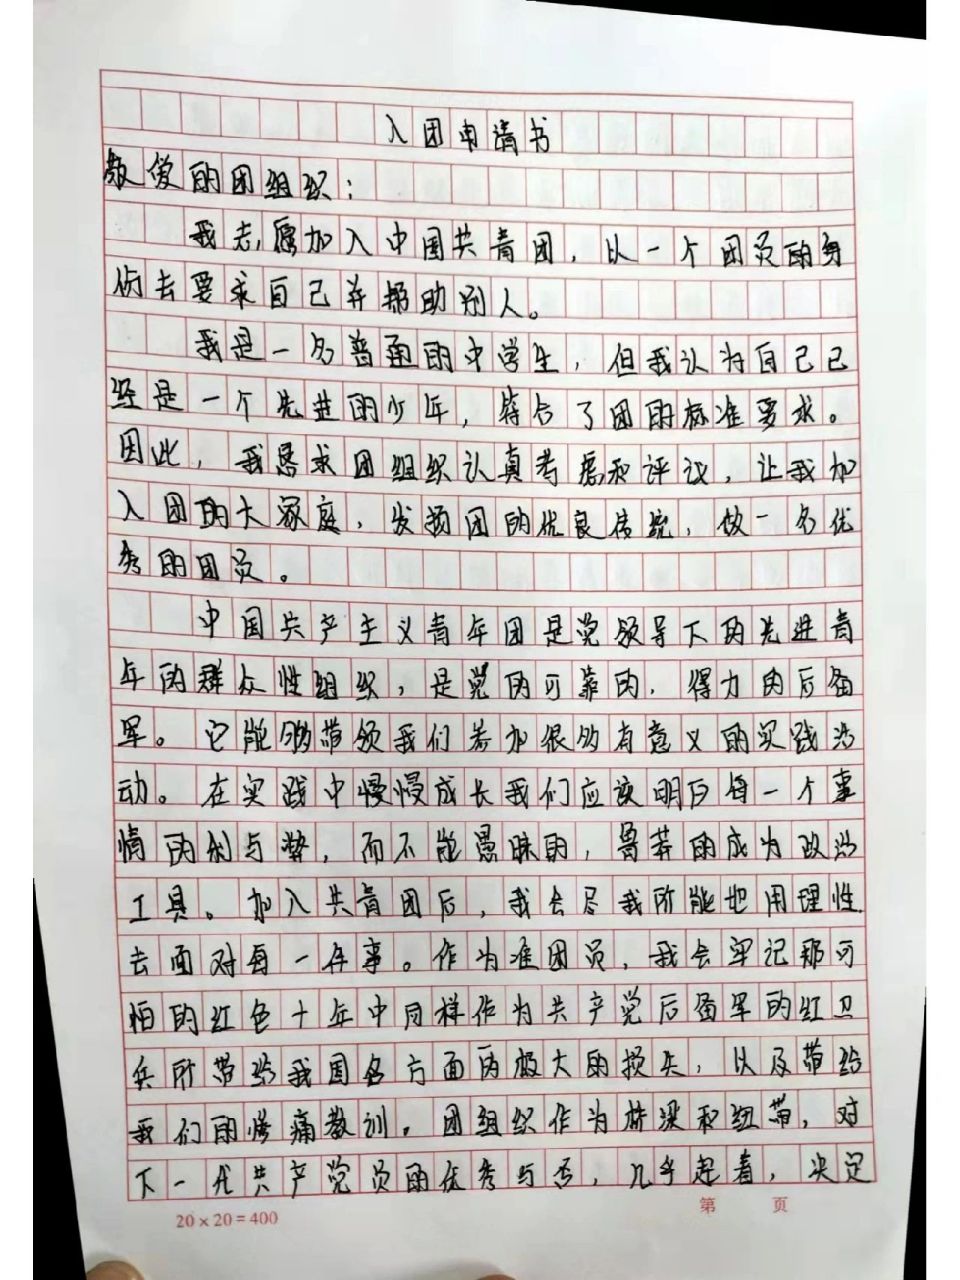 入团申请书
敬爱的团组织：
我志愿加入中国共青团，以一个团员的身
份去要求自己并帮助别人。
我是一名普通的中学生，但我认为自己已
经是一个先进的少年，符合了团的标准要求。
因此，我恳求团组织认真考虑和评议，让我加
入团的大家庭，发扬团的优良传统，做一名优
秀的团员。
中国共产主义青年团是党领导下的先进青
年的群众性组织，是党的可靠的，得力的后备
军。它能够带领我们参加很多有意义的实践活
动。在实践中慢慢成长我们应该明白每一个事
情的利与弊，而不能愚昧的，鲁莽的成为政治
工具。加入共青团后，我会尽我所能地用理性
去面对每一件事。作为准团员，我会牢记那可
怕的红色十年中同样作为共产党后备军的红卫
兵所带给我国各方面的极大的损失，以及带给
我们的惨痛教训。团组织作为桥梁和纽带，对
下一代共产党员的优秀与否，几乎起着，决定
20×20=400
第 页